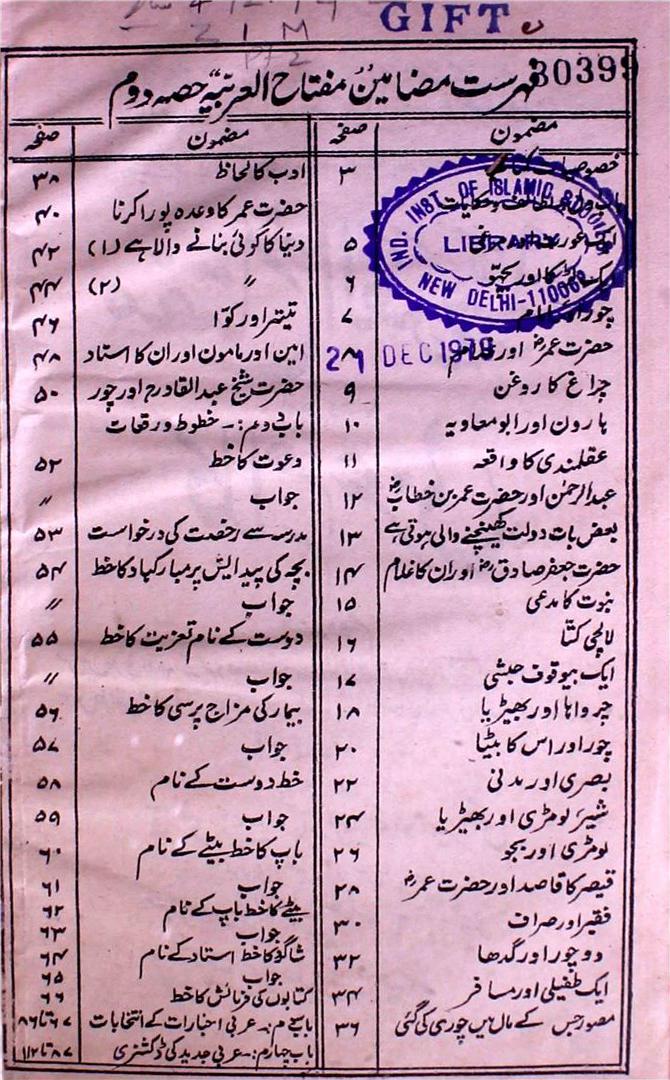 GIFT
30399
فہرست مضامین مفتاح العربیہ حصہ دوم
مضمون صفحہ
۳
۵
۶
۷
حضرت عمرؓ اور ۸
چراغ کا روغن ۹
ہارون اور ابو معاویہ ۱۰
عقلمندی کا واقعہ ۱۱
عبدالرحمٰن اور حضرت عمر بن خطابؓ ۱۲
بعض بات دولت کھینچنے والی ہوتی ہے ۱۳
حضرت جعفر صادقؓ اور ان کا غلام ۱۴
نبوت کا مدعی ۱۵
لالچی کتّا ۱۶
ایک بیوقوف حبشی ۱۷
چرواہا اور بھیڑیا ۱۸
چور اور اس کا بیٹا ۲۰
بصری اور مدنی ۲۲
شیر لومڑی اور بھیڑیا ۲۴
لومڑی اور بجو ۲۶
قیصر کا قاصد اور حضرت عمرؓ ۲۸
فقیر اور صراف ۳۰
دو چور اور گدھا ۳۲
ایک طفیلی اور مسافر ۳۴
مصور جس کے مال میں چوری کی گئی ۳۶
مضمون صفحہ
ادب کا لحاظ ۳۸
حضرت عمر کا وعدہ پورا کرنا ۴۰
دنیا کا کوئی بنانے والا ہے (۱) ۴۲
〃 (۲) ۴۴
تیتر اور کوّا ۴۶
امین اور مامون اور ان کا استاد ۴۸
حضرت شیخ عبدالقادرؒ اور چور ۵۰
باب دوم :- خطوط ورقعات
دعوت کا خط ۵۲
جواب 〃
مدرسہ سے رخصت کی درخواست ۵۳
بچہ کی پیدائیش پر مبارکباد کا خط ۵۴
جواب 〃
دوست کے نام تعزیت کا خط ۵۵
جواب 〃
بیمار کی مزاج پرسی کا خط ۵۶
جواب ۵۷
خط دوست کے نام ۵۸
جواب ۵۹
باپ کا خط بیٹے کے نام ۶۰
جواب ۶۱
بیٹے کا خط باپ کے نام ۶۲
جواب ۶۳
شاگرد کا خط استاد کے نام ۶۴
جواب ۶۵
کتابوں کی فرمائش کا خط ۶۶
باب سوم :- عربی اخبارات کے انتخابات ۶۷ تا ۸۶
باب چہارم :- عربی جدید کی ڈکشنری ۸۷ تا ۱۱۲
IND. INST. OF ISLAMIC STUDIES
LIBRARY
NEW DELHI-110062
21 DEC 1979